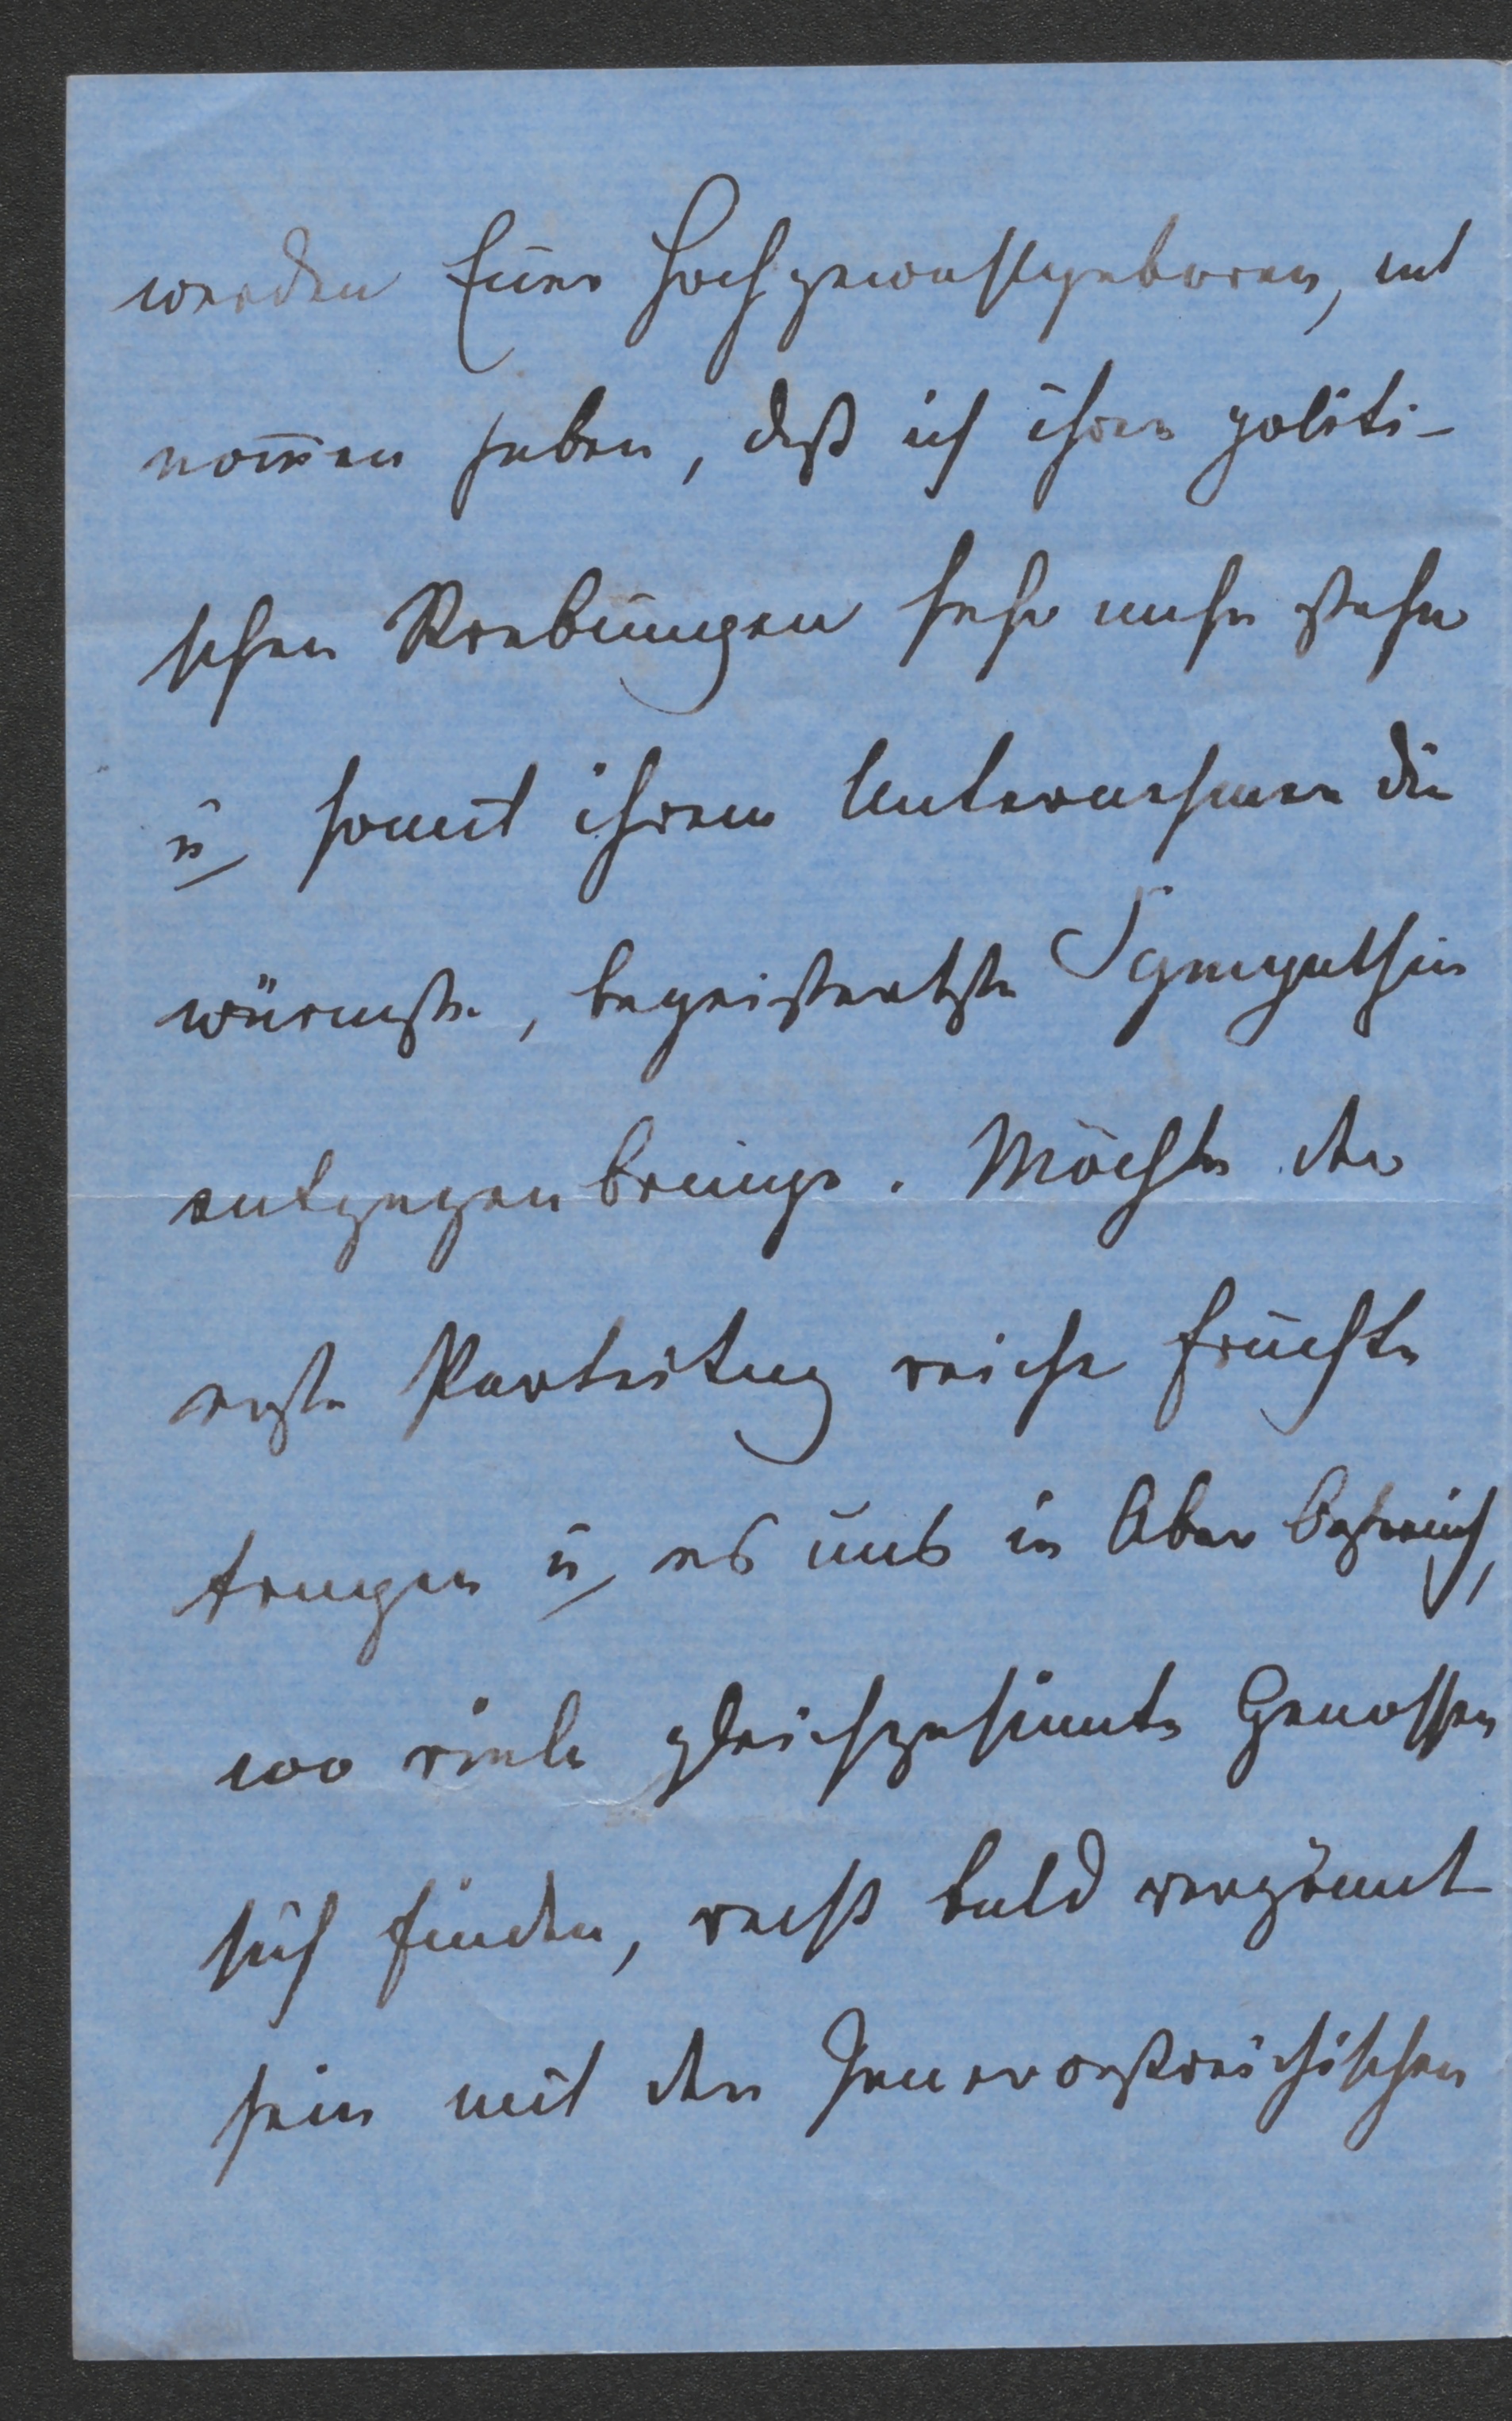 werden Euer Hochgewohlgeboren, ent
nom̅en haben, daß ich ihren politi-
schen Strebungen sehr nahe stehe
u somit ihrem Unternehmen die
wärmste, begeistertste Sympathie
entgegenbringe. Möchte der
erste Parteitag reiche Früchte
tragen u es uns in Ober Oestreich,
wo viele gleichgesinnte Genossen
sich finden, recht bald vergönnt
sein mit den Innerœstreichischen